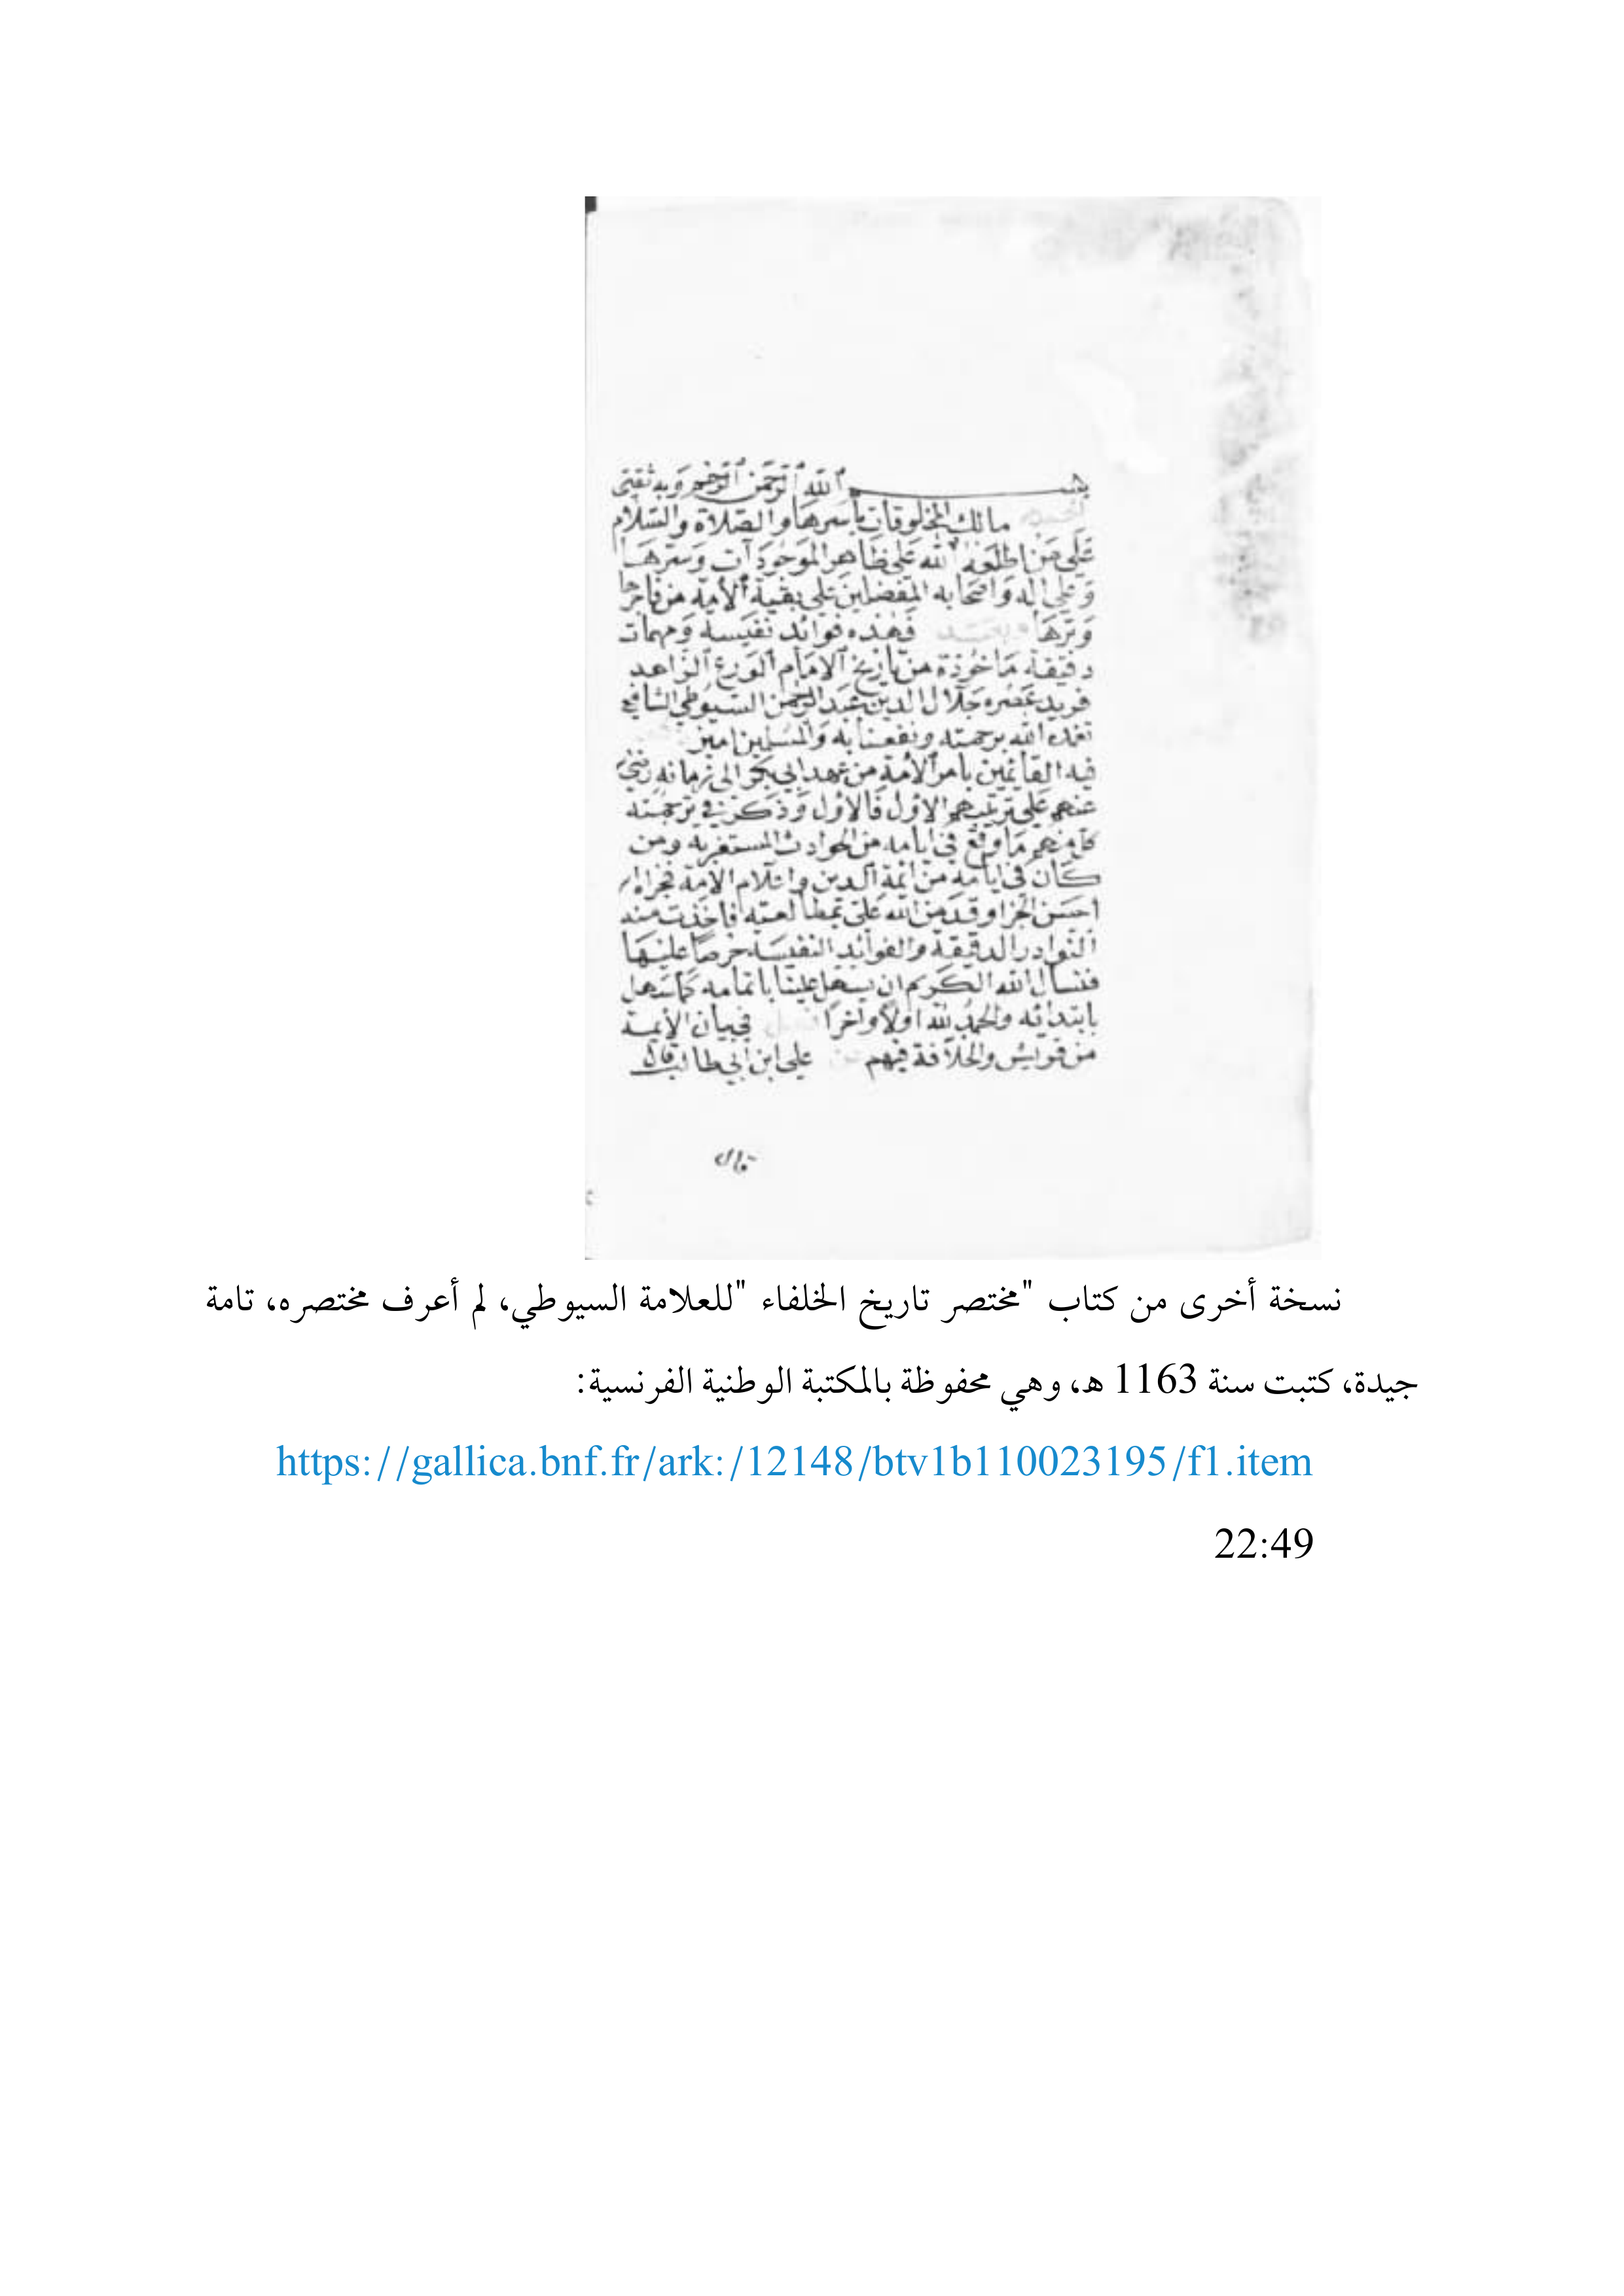 بسم الله الرحمن الرحيم وبه ثقتي
الحمد مالك المخلوقات بأسرها والصلاة والسلام
على من اطلعه الله على ظاهر الموجودات وسرها
وعلى اله واصحابه المفضلين على بقية الأمة من فاجرها
وبرها وبعد فهذه فوائد نفيسة ومهمات
دقيقة ماخوذة من تاريخ الامام الورع الزاهد
فريد عصره جلال الدين عبد الرحمن السيوطي الشافعي
تغمده الله برحمته ونفعنا به والمسلمين امين
فيه القائمين بامر الأمة من عهد ابي بكر الى زمانه رضي
عنهم على ترتيبهم الاول فالاول وذكر في ترجمته
كل منهم ما وقع في ايامه من الحوادث المستغربة ومن
كان في ايامه من ائمة الدين واعلام الامة فجزاه
احسن الجزا وقد من الله على بمطالعته فاخذت منه
النوادر الدقيقة والفوائد النفيسة حرصا عليها
فنسال الله الكريم ان يسهل علينا باتمامه كما سهل
بابتدائه والحمد لله اولا واخرا فصل في بيان الأيمة
من قريش والخلافة فيهم عن على ابن ابي طالب قال
قال
نسخة أخرى من كتاب "مختصر تاريخ الخلفاء "للعلامة السيوطي، لم أعرف مختصره، تامة
جيدة، كتبت سنة 1163 هـ، وهي محفوظة بالمكتبة الوطنية الفرنسية:
https://gallica.bnf.fr/ark:/12148/btv1b110023195/f1.item
22:49